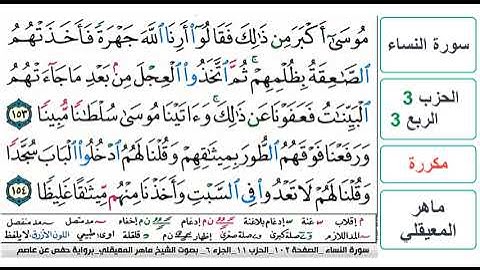 مُوسَىٰٓ أَكۡبَرَ مِن ذَٰلِكَ فَقَالُوٓاْ أَرِنَا ٱللَّهَ جَهۡرَةٗ فَأَخَذَتۡهُمُ
ٱلصَّٰعِقَةُ بِظُلۡمِهِمۡۚ ثُمَّ ٱتَّخَذُواْ ٱلۡعِجۡلَ مِنۢ بَعۡدِ مَا جَآءَتۡهُمُ
ٱلۡبَيِّنَٰتُ فَعَفَوۡنَا عَن ذَٰلِكَۚ وَءَاتَيۡنَا مُوسَىٰ سُلۡطَٰنٗا مُّبِينٗا ١٥٣
وَرَفَعۡنَا فَوۡقَهُمُ ٱلطُّورَ بِمِيثَٰقِهِمۡ وَقُلۡنَا لَهُمُ ٱدۡخُلُواْ ٱلۡبَابَ سُجَّدٗا
وَقُلۡنَا لَهُمۡ لَا تَعۡدُواْ فِي ٱلسَّبۡتِ وَأَخَذۡنَا مِنۡهُم مِّيثَٰقًا غَلِيظٗا ١٥٤
سورة النساء _الصفحة ١٠٢_ الحزب ١١_ الجزء ٦_ بصوت الشيخ ماهر المعيقلي_برواية حفص عن عاصم
سورة النساء
الحزب 3
الربع 3
مكررة
ماهر
المعيقلي